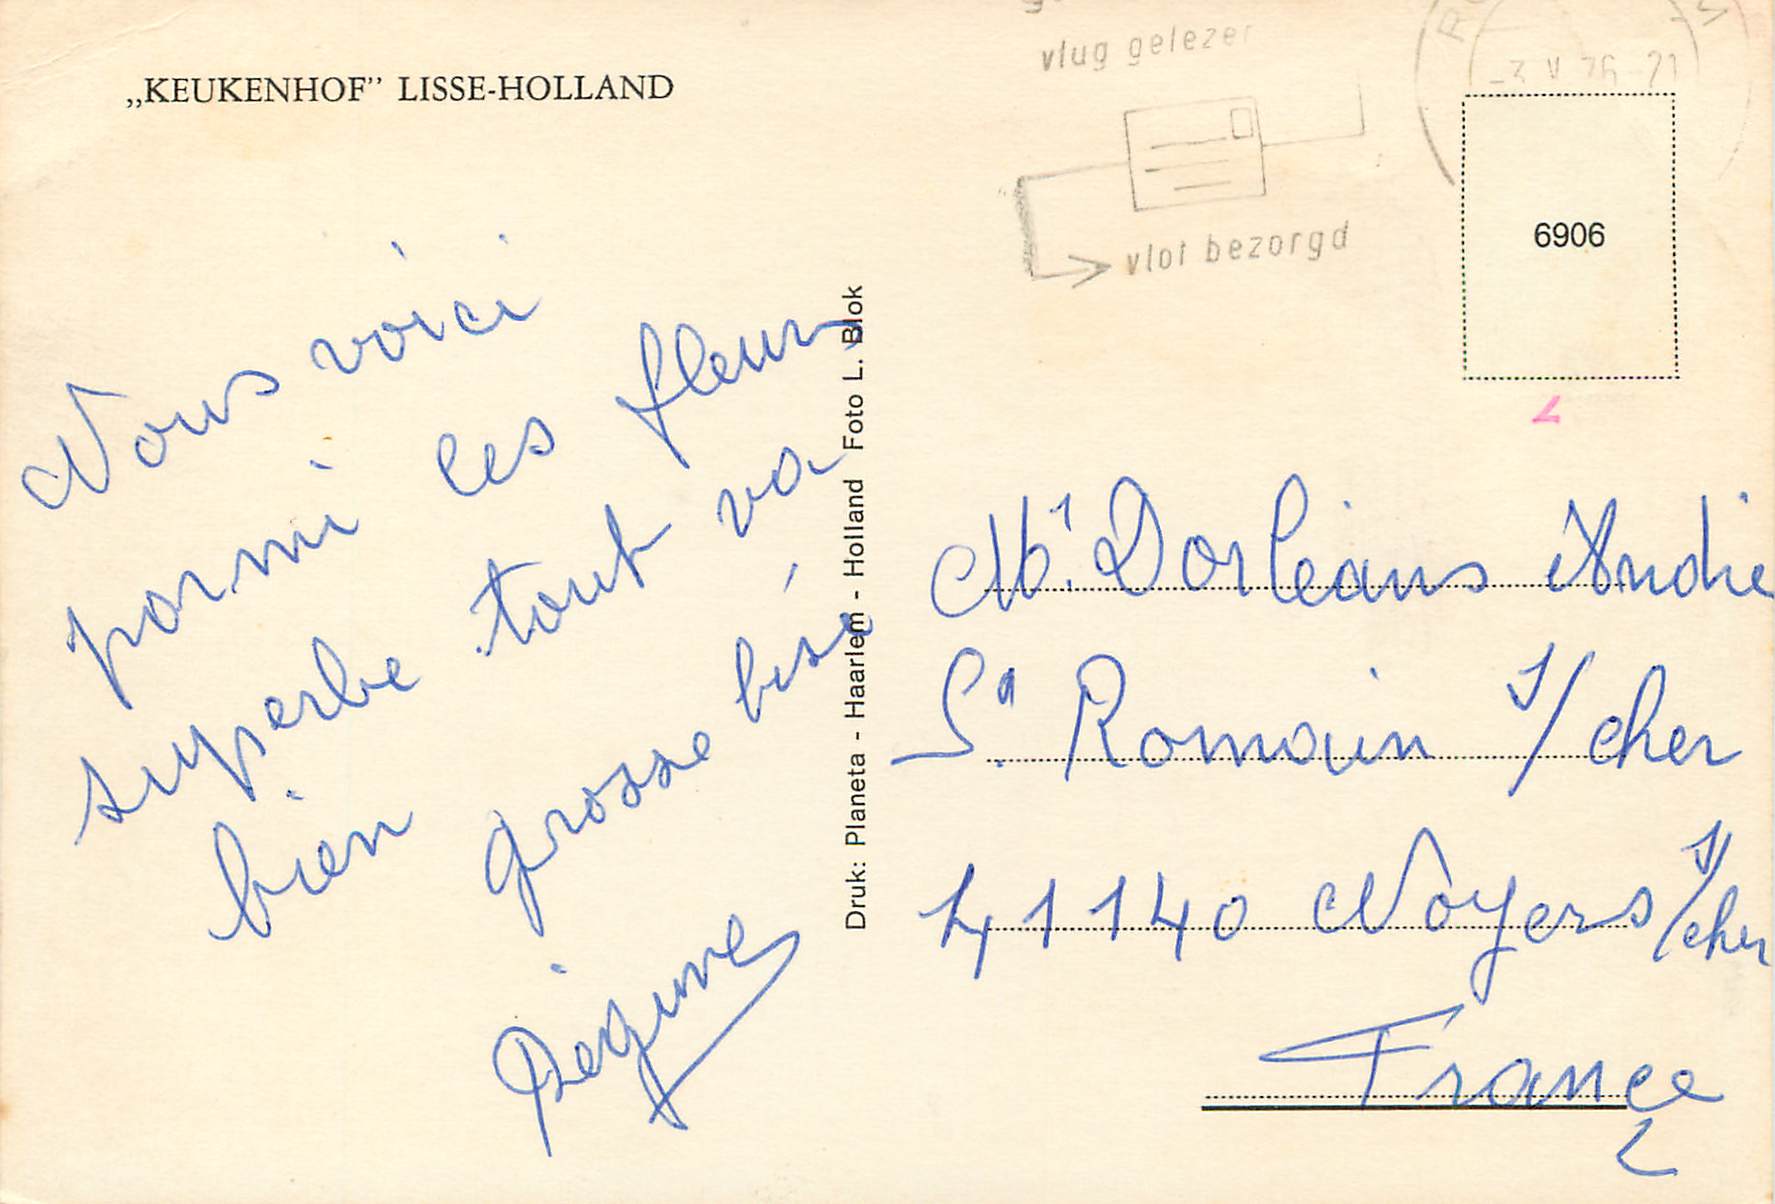 „KEUKENHOF” LISSE-HOLLAND
vlug gelezen
vlot bezorgd
-3 V 76-21
6906
Nous voici
parmi les fleurs
superbe tout va
bien grosse bise
Régine
Druk: Planeta - Haarlem - Holland Foto L. Blok
Mr. Dorléans André
St Romain s/ cher
41140 Noyers s/cher
France